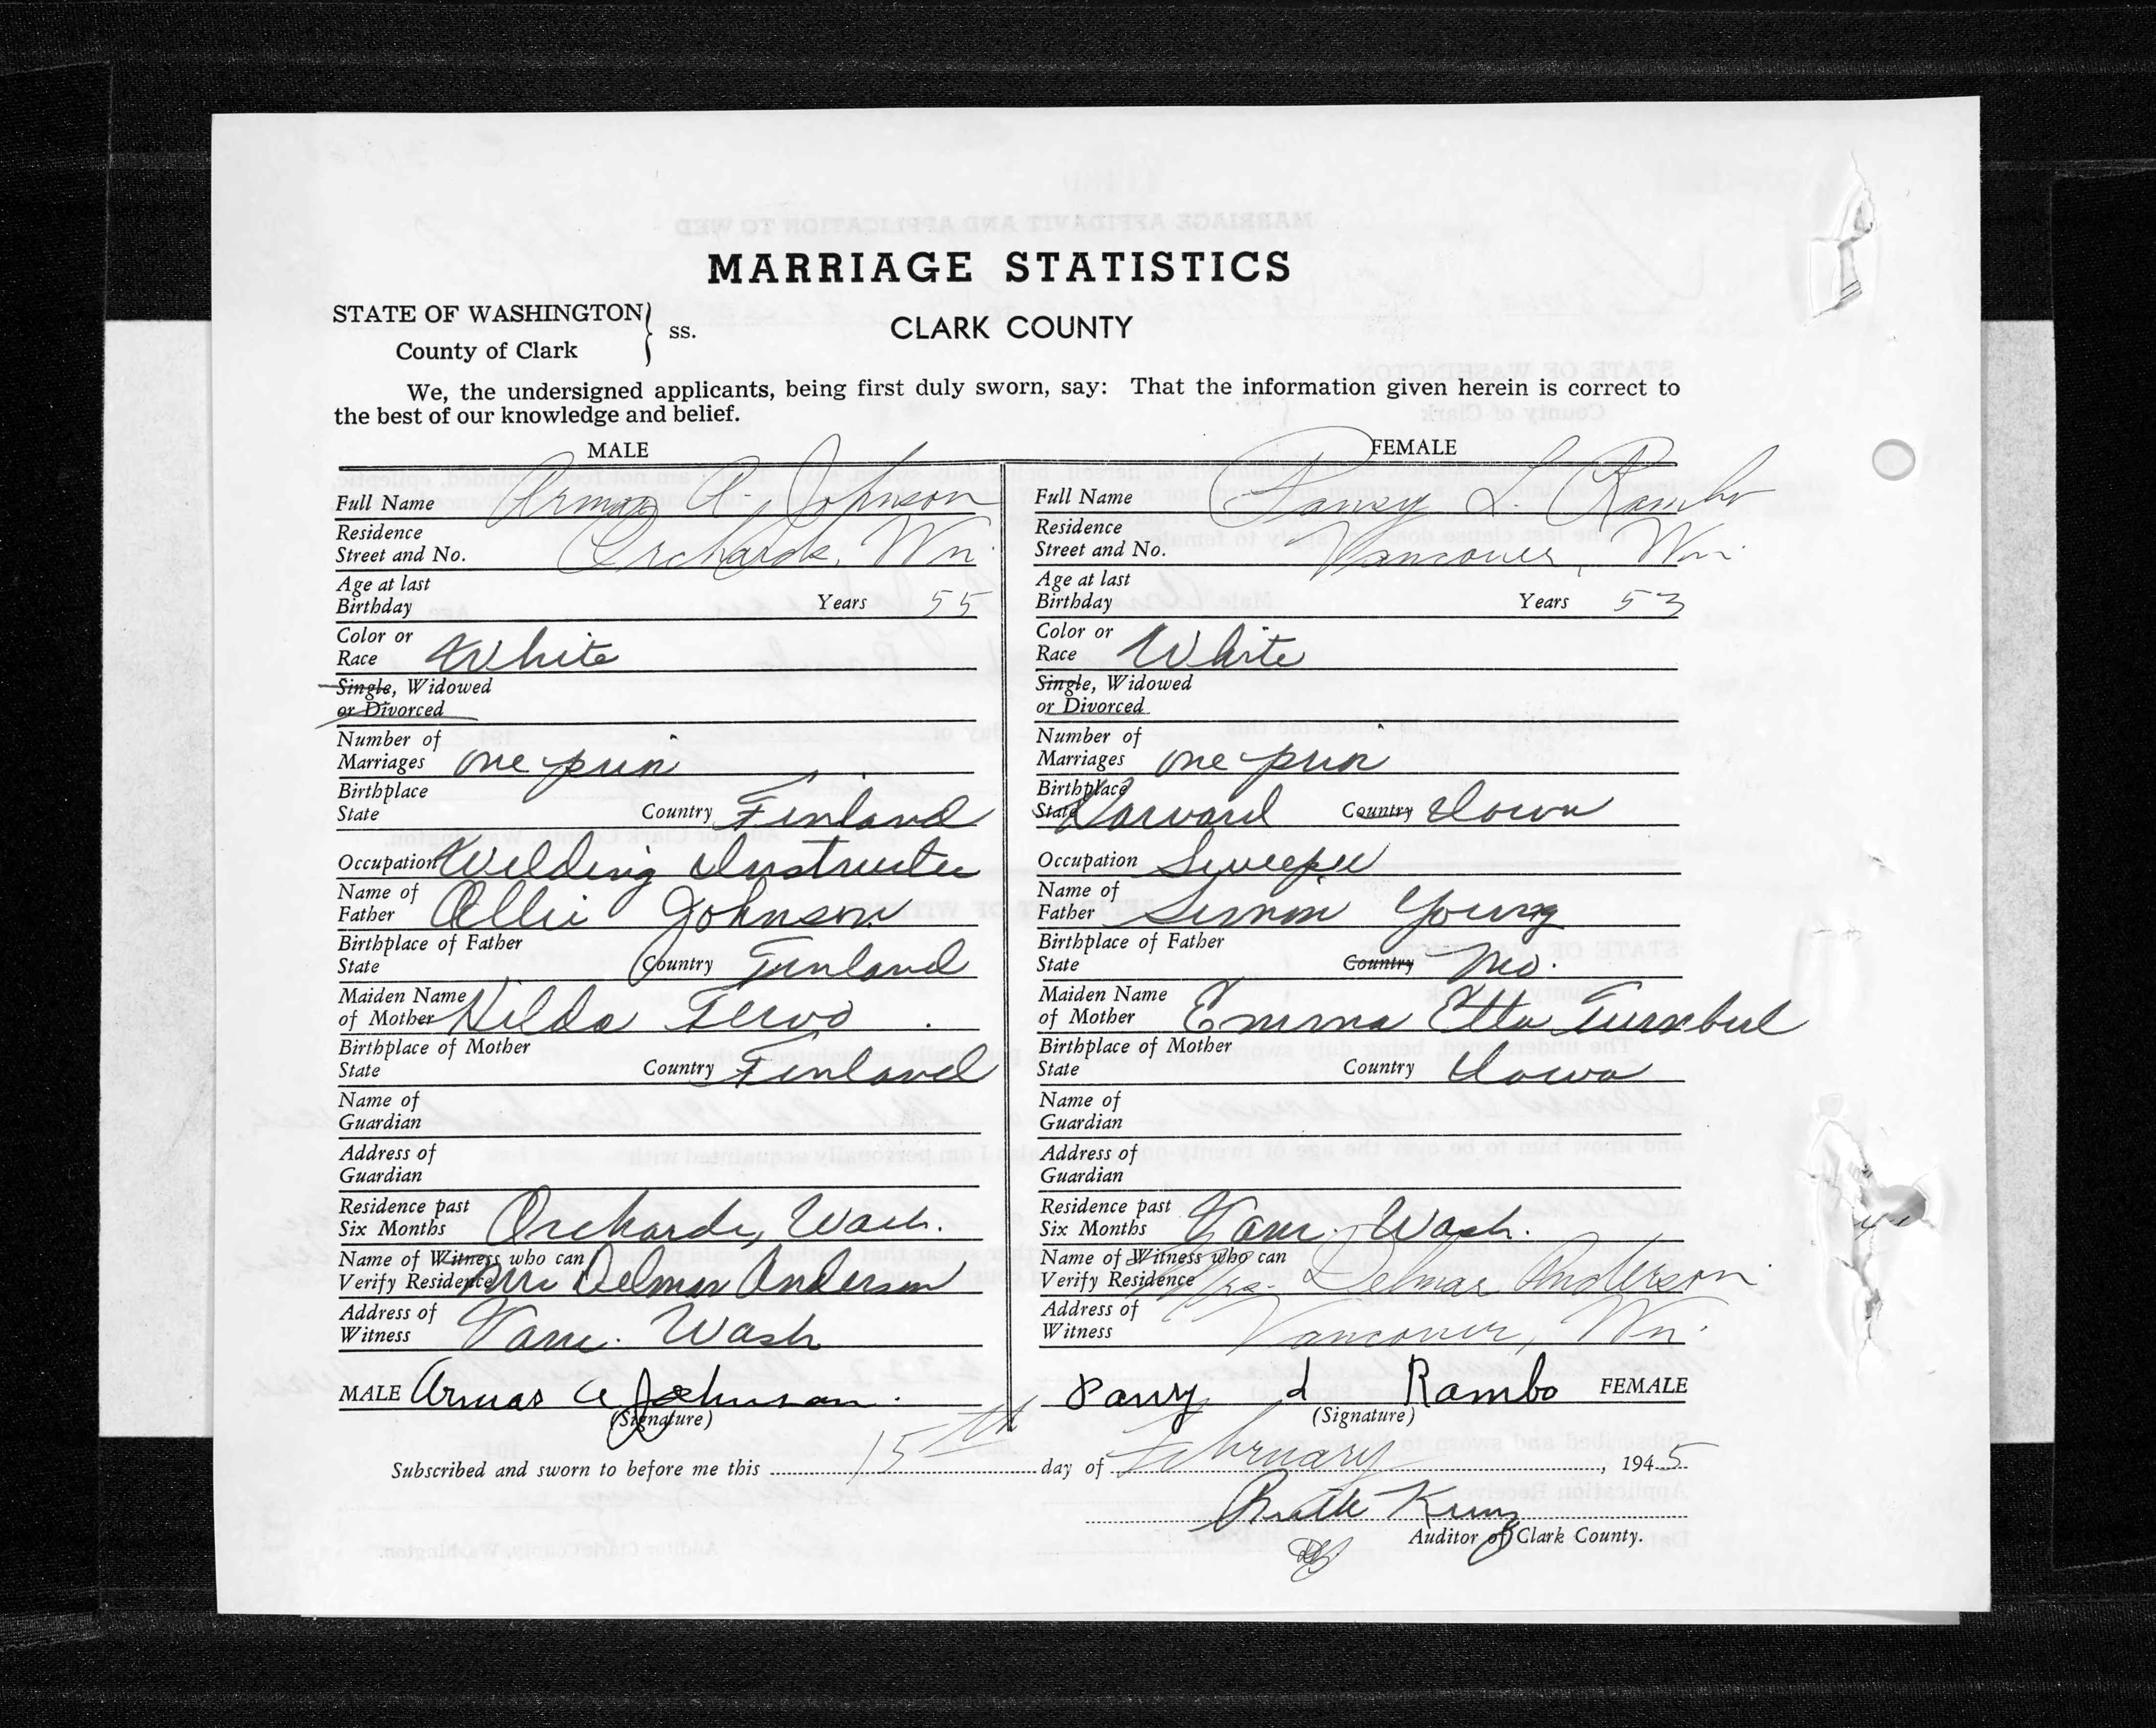 MARRIAGE STATISTICS
STATE OF WASHINGTON } ss.
CLARK COUNTY
County of Clark
We, the undersigned applicants, being first duly sworn, say: That the information given herein is correct to
the best of our knowledge and belief.
MALE
Full Name Armas A. Johnson
Residence
Street and No. Orchards, Wn.
Age at last
Birthday Years 55
Color or
Race White
Single, Widowed
or Divorced
Number of
Marriages one prior
Birthplace
State Country Finland
Occupation Welding Instructor
Name of
Father Ollie Johnson
Birthplace of Father
State Country Finland
Maiden Name
of Mother Hilda Tervo
Birthplace of Mother
State Country Finland
Name of
Guardian
Address of
Guardian
Residence past
Six Months Orchards, Wash.
Name of Witness who can
Verify Residence Mrs Delmar Anderson
Address of
Witness Vanc. Wash
MALE Armas A Johnson
(Signature)
FEMALE
Full Name Pansy L. Rambo
Residence
Street and No. Vancouver, Wn.
Age at last
Birthday Years 53
Color or
Race White
Single, Widowed
or Divorced
Number of
Marriages one prior
Birthplace
State Country Iowa
Occupation Sweeper
Name of
Father Simon Young
Birthplace of Father
State Country Mo.
Maiden Name
of Mother Emma Etta Turnbul
Birthplace of Mother
State Country Iowa
Name of
Guardian
Address of
Guardian
Residence past
Six Months Vanc. Wash.
Name of Witness who can
Verify Residence Mrs. Delmar Anderson
Address of
Witness Vancouver, Wn.
Pansy L Rambo FEMALE
(Signature)
Subscribed and sworn to before me this 15th day of February, 1945
Auditor of Clark County.